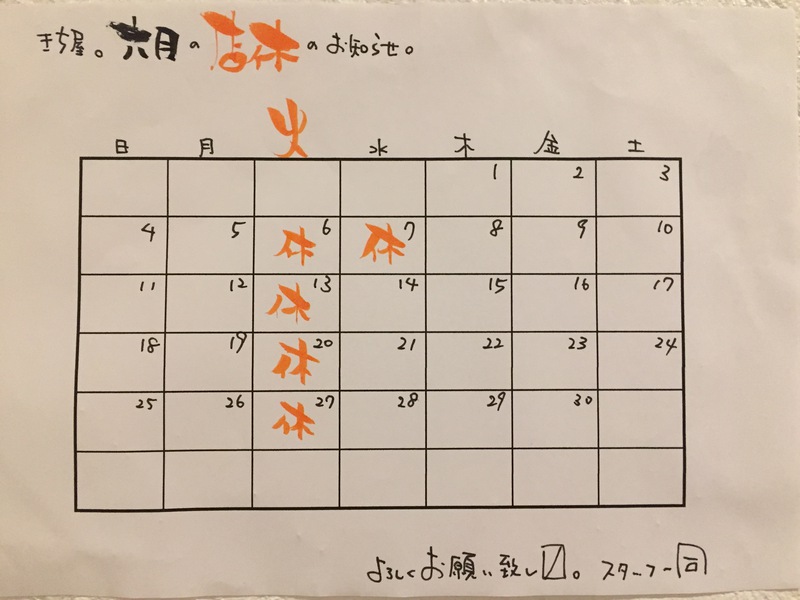 きち屋。六月の店休のお知らせ。
日 月 火 水 木 金 土
1 2 3
4 5 休 6 休 7 8 9 10
11 12 休 13 14 15 16 17
18 19 休 20 21 22 23 24
25 26 休 27 28 29 30
よろしくお願い致し〼。スタッフ一同